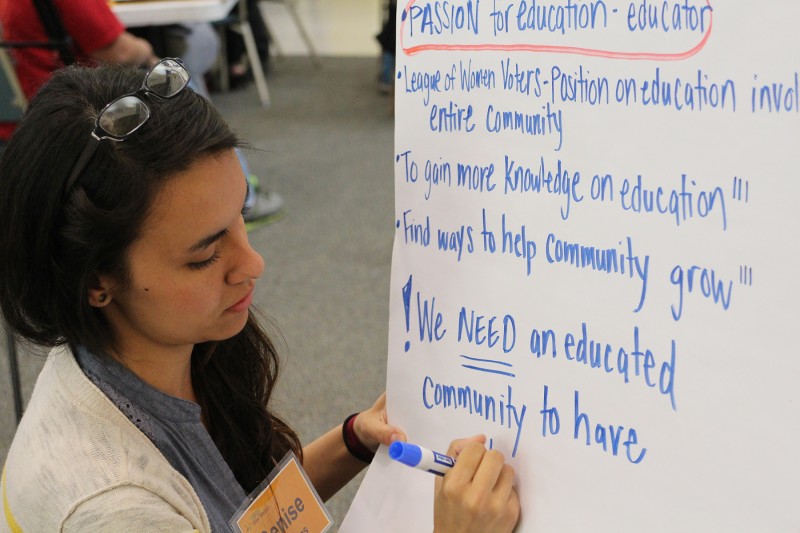 • PASSION for education - educator
• League of Women Voters - Position on education invol
entire community
• To gain more knowledge on education "'
• Find ways to help community grow "'
! We NEED an educated
community to have
enise